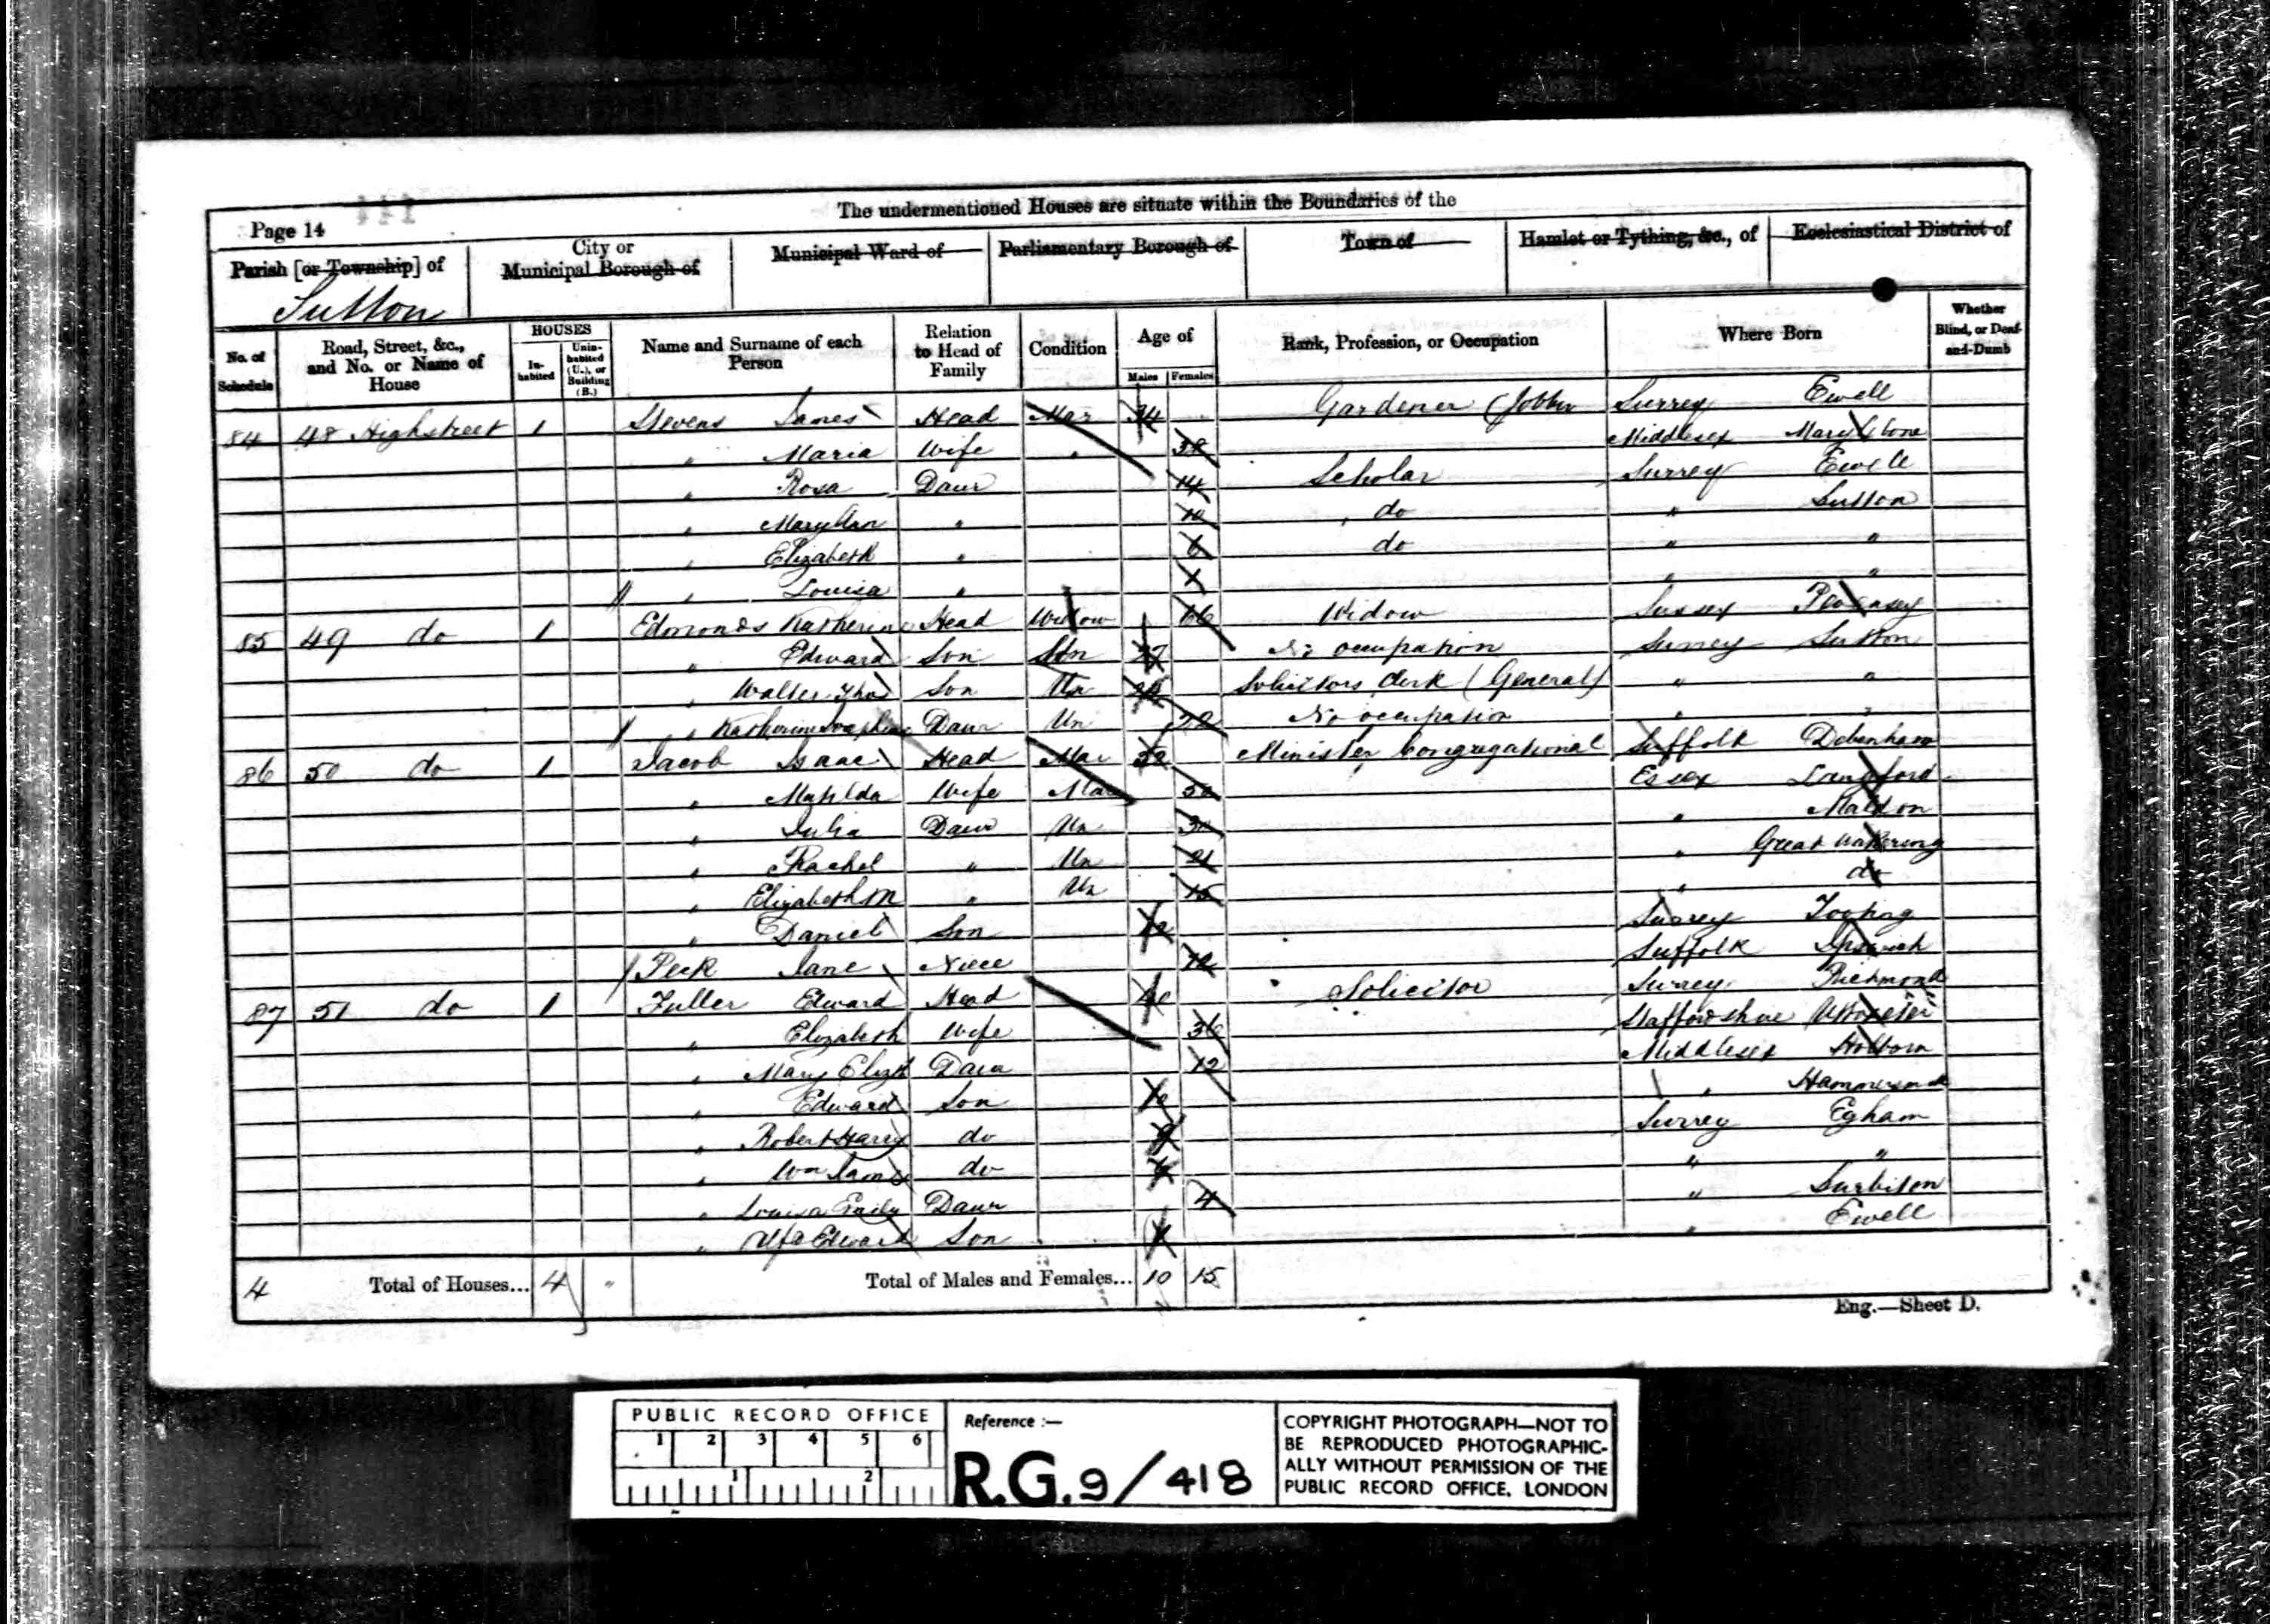 The undermentioned Houses are situate within the Boundaries of the
Page 14
Parish [or Township] of
Sutton
City or
Municipal Borough of
Municipal Ward of
Parliamentary Borough of
Town of
Hamlet or Tything, &c., of
Ecclesiastical District of
No. of Schedule
Road, Street, &c., and No. or Name of House
HOUSES
In-habited
Unin-habited (U.), or Building (B.)
Name and Surname of each Person
Relation to Head of Family
Condition
Age of
Males
Females
Rank, Profession, or Occupation
Where Born
Whether Blind, or Deaf-and-Dumb
84 48 Highstreet 1 Stevens James Head Mar 34 Gardener (Jobber Surrey Ewell
" Maria Wife " 38 Middlesex Marylebone
" Rosa Daur 14 Scholar Surrey Ewell
" Mary Ann " 10 do " Sutton
" Elizabeth " 6 do " "
" Louisa " " "
85 49 do 1 Edmonds Katherine Head Widow 66 Widow Sussex
" Edward Son 27 No occupation Surrey Sutton
" Walter Thos Son Un Solicitors Clerk (General) " "
" Katherine Daur Un 22 No occupation " "
86 50 do 1 Jacob Isaac Head Mar 52 Minister Congregational Suffolk Debenham
" Matilda Wife Mar 52 Essex Langford
" Julia Daur Un 30 " Maldon
" Rachel " Un 21 " Great Wakering
" Elizabeth M " Un 15 " do
" Daniel Son 12 Surrey Tooting
Peck Jane Niece 12 Suffolk Ipswich
87 51 do 1 Fuller Edward Head 40 Solicitor Surrey Richmond
" Elizabeth Wife 36 Staffordshire Uttoxeter
" Mary Elizth Daur 12 Middlesex Holborn
" Edward Son 10 " Hammersmith
" Robert Harry do 9 Surrey Egham
" Wm James do " "
" Louisa Emily Daur 4 " Surbiton
" Alfd Edward Son " Ewell
4 Total of Houses... 4 " Total of Males and Females... 10 15
Eng.—Sheet D.
PUBLIC RECORD OFFICE
1 2 3 4 5 6
1 2
Reference :—
R.G. 9/418
COPYRIGHT PHOTOGRAPH—NOT TO
BE REPRODUCED PHOTOGRAPHIC-
ALLY WITHOUT PERMISSION OF THE
PUBLIC RECORD OFFICE, LONDON